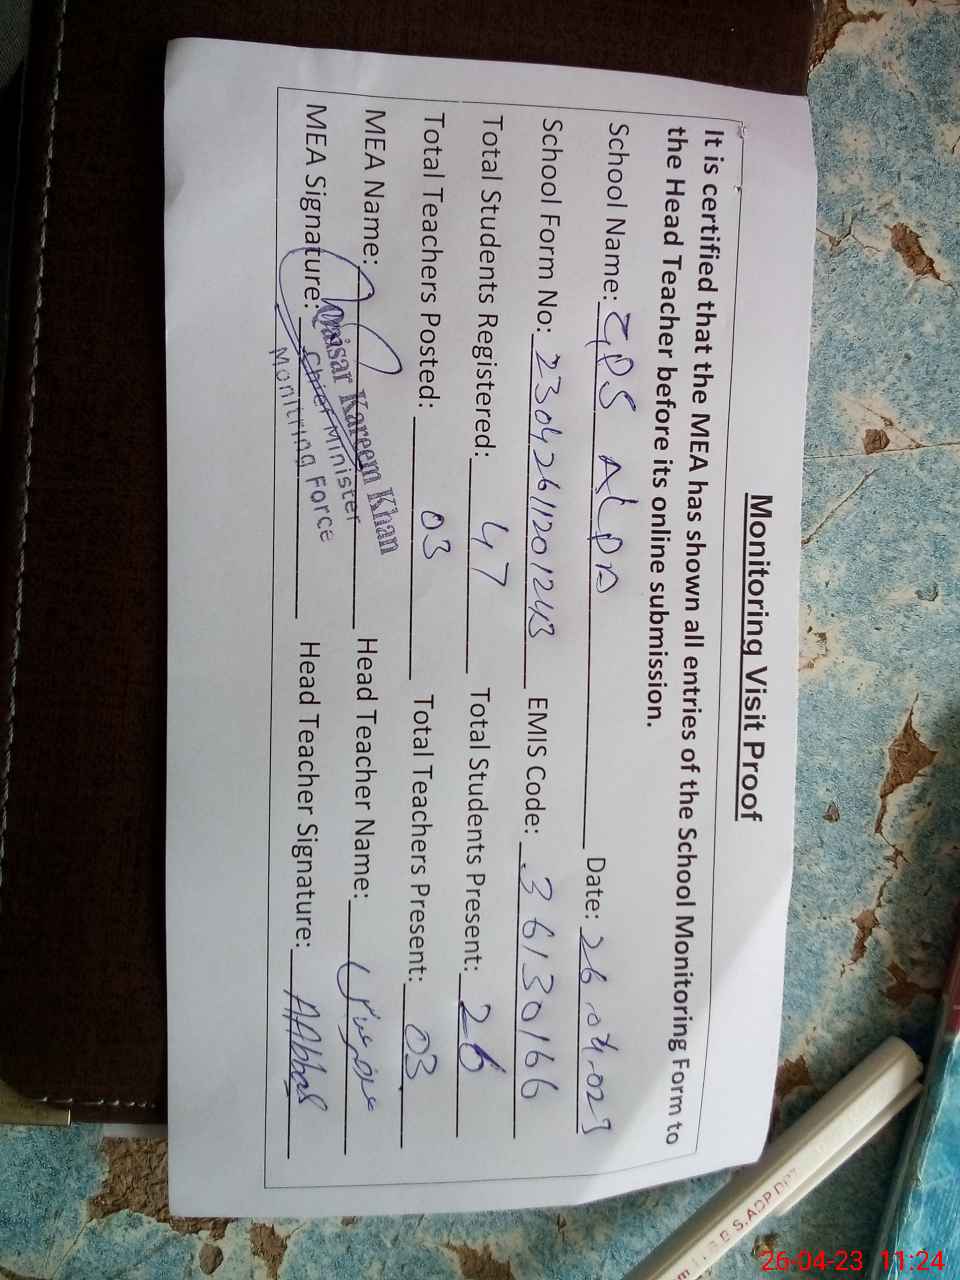 Monitoring Visit Proof
It is certified that the MEA has shown all entries of the School Monitoring Form to
the Head Teacher before its online submission.
School Name: GPS Date: 26.04.023
School Form No: 23042611201243 EMIS Code: 36130166
Total Students Registered: 47 Total Students Present: 26
Total Teachers Posted: 03 Total Teachers Present: 03
MEA Name: Kareem Khan Head Teacher Name:
Chief Minister
MEA Signature: Head Teacher Signature: AAbbas
Monitring Force
26-04-23 11:24